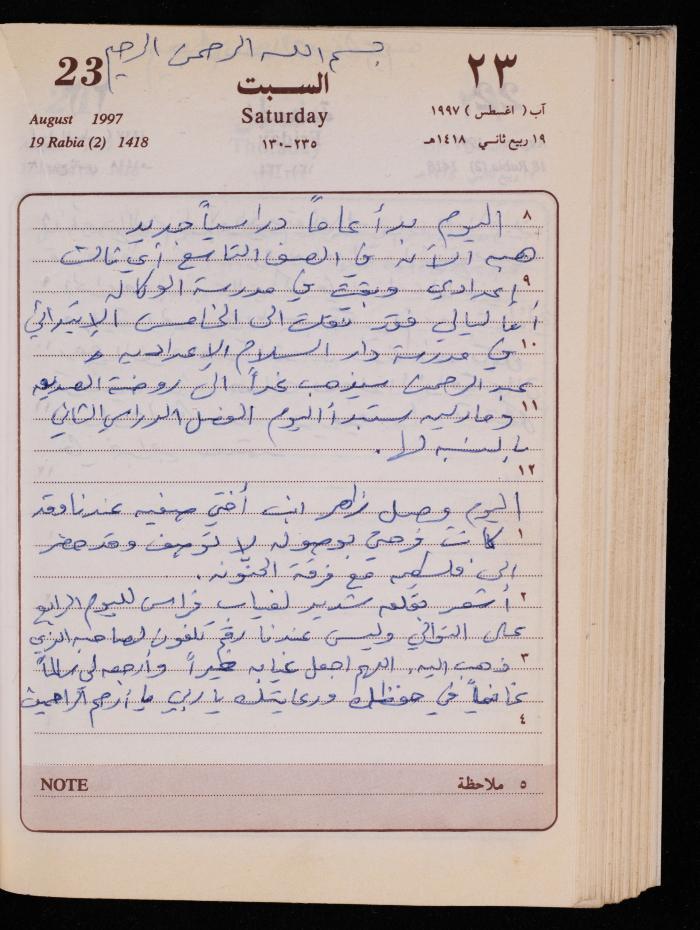 بسم الله الرحمن الرحيم
23 السبت ٢٣
August 1997 Saturday آب ( اغسطس ) ١٩٩٧
19 Rabia (2) 1418 ٢٣٥-١٣٠ ١٩ ربيع ثاني ١٤١٨هـ
٨
اليوم بدأ عاماً دراسياً جديد
هبه الآن في الصف التاسع أي ثالث
٩
إعدادي وبقيت في مدرسة الوكالة
أما ليالي فقد نقلت الى الخامس الإبتدائي
١٠
في مدرسة دار السلام الإعدادية و
عبد الرحمن سيذهب غداً الى روضة
١١
وماريه ستبدأ اليوم الفصل الدراسي الثاني
بالنسبه لها .
١٢
اليوم وصل زاهر ابن أختي صفيه عندنا وقد
١
كانت فرحتي بوصوله لا توصف وقد حضر
الى فلسطين مع فرقة الحنونه .
٢
أشعر بقلق شديد لغياب فراس لليوم الرابع
على التوالي وليس عندنا رقم تلفون لصاحبه الذي
٣
ذهب اليه . اللهم اجعل غيابه خيراً وأرجعه لي سالماً
غانماً في حفظك ورعايتك يا ربي يا أرحم الراحمين
٤
NOTE ٥ ملاحظة